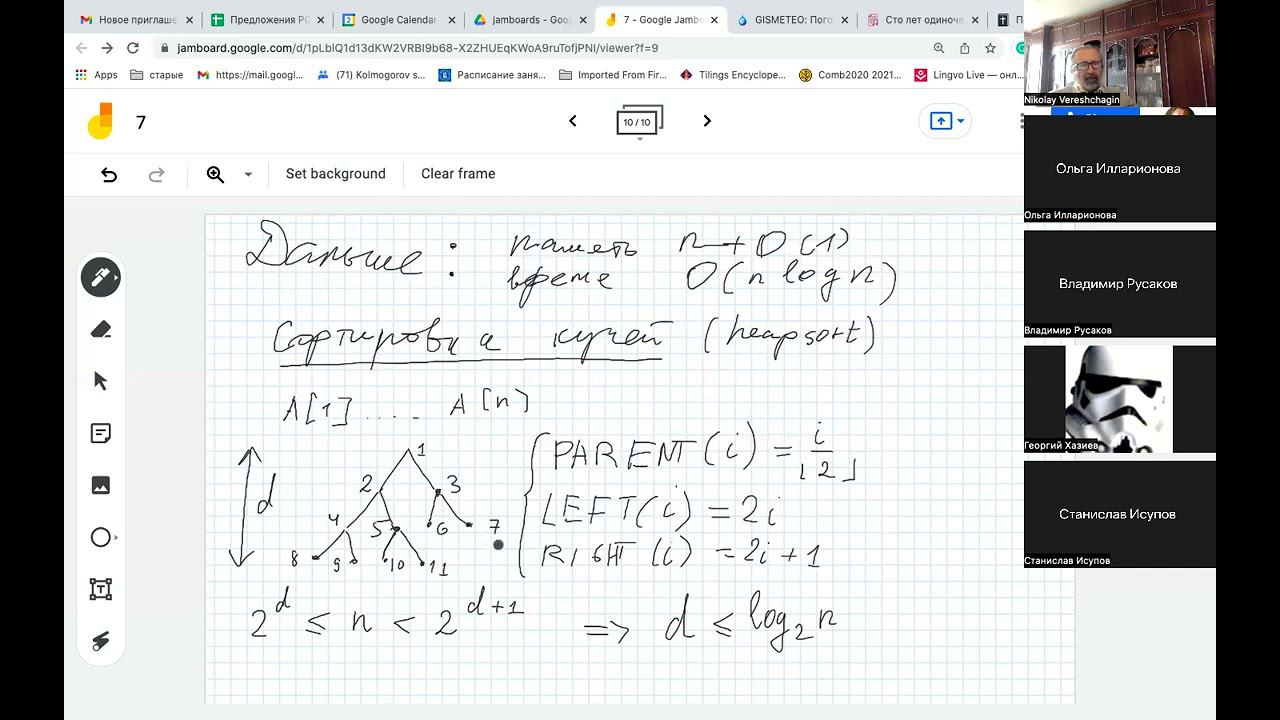 Новое приглаше
Предложения РС
Google Calendar
jamboards - Goo
7 - Google Jambo
GISMETEO: Пого
Сто лет одиноче
jamboard.google.com/d/1pLblQ1d13dKW2VRBI9b68-X2ZHUEqKWoA9ruTofjPNI/viewer?f=9
Apps
старые
https://mail.googl...
(71) Kolmogorov s...
Расписание заня...
Imported From Fir...
Tilings Encyclope...
Comb2020 2021...
Lingvo Live — онл...
7
10 / 10
Set background
Clear frame
Дальше: память n + O(1)
время O(n log n)
Сортировка кучей (heapsort)
A[1] .... A[n]
1
2 3
4 5 6 7
8 9 10 11
d
PARENT(i) = ⌊i/2⌋
LEFT(i) = 2i
RIGHT(i) = 2i+1
2^d ≤ n < 2^{d+1} => d ≤ log₂ n
Nikolay Vereshchagin
Ольга Илларионова
Ольга Илларионова
Владимир Русаков
Владимир Русаков
Георгий Хазиев
Станислав Исупов
Станислав Исупов